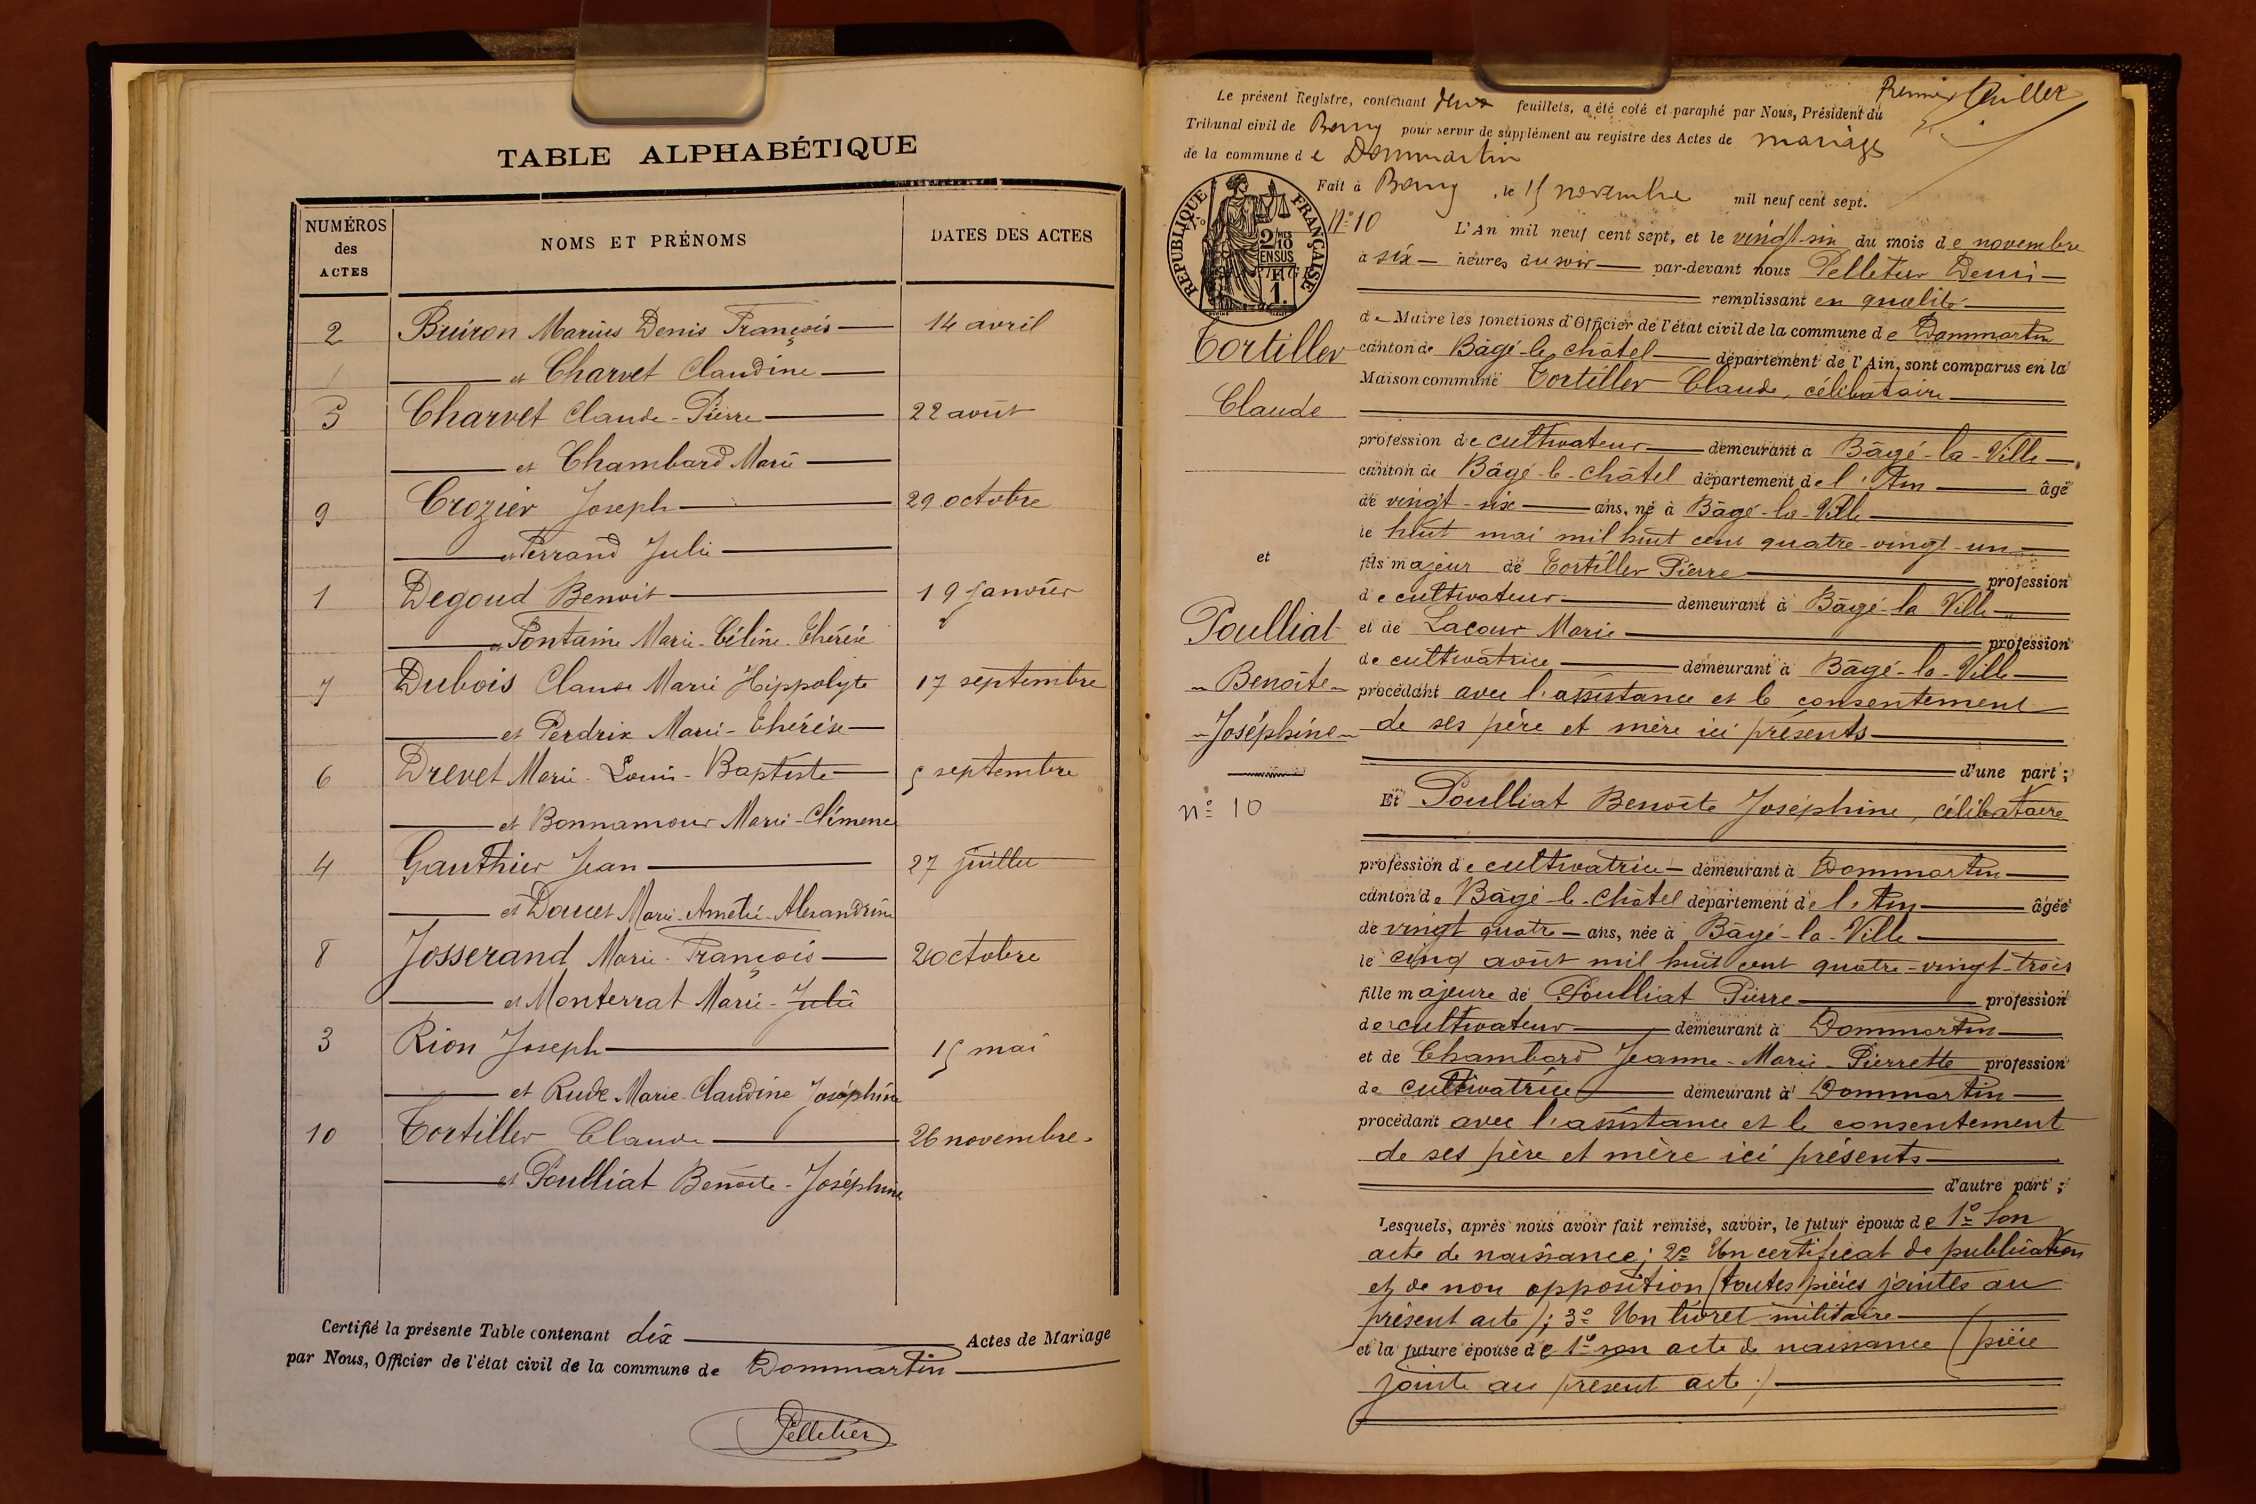 TABLE ALPHABÉTIQUE
NUMÉROS des ACTES
NOMS ET PRÉNOMS
DATES DES ACTES
2 Buiron Marius Denis François 14 avril
et Charvet Claudine
5 Charvet Claude-Pierre 22 août
et Chambard Marie
9 Crozier Joseph 29 octobre
et Perrand Julie
1 Degoud Benoit 19 janvier
et Fontaine Marie-Céline-Thérèse
7 Dubois Claude Marie Hippolyte 17 septembre
et Perdrix Marie-Thérèse
6 Drevet Marie-Louis-Baptiste 5 septembre
et Bonnamour Marie-Clémence
4 Gauthier Jean 27 juillet
et Doucet Marie-Amélie-Alexandrine
8 Josserand Marie-François 2 octobre
et Monterrat Marie-Julie
3 Rion Joseph 15 mai
et Rude Marie-Claudine Joséphine
10 Tortiller Claude 26 novembre
et Poulliat Benoîte-Joséphine
Certifié la présente Table contenant dix Actes de Mariage
par Nous, Officier de l'état civil de la commune de Dommartin
Pelletier
Premier feuillet
Le présent Registre, contenant deux feuillets, a été coté et paraphé par Nous, Président du
Tribunal civil de Bourg pour servir de supplément au registre des Actes de mariages
de la commune de Dommartin
Fait à Bourg, le 15 novembre mil neuf cent sept.
RÉPUBLIQUE FRANÇAISE
2/10 EN SUS
1F
N° 10
L'An mil neuf cent sept, et le vingt-six du mois de novembre
à six heures du soir par-devant nous Pelletier Denis
remplissant en qualité
de Maire les fonctions d'Officier de l'état civil de la commune de Dommartin
Tortiller
canton de Bâgé-le-châtel département de l'Ain, sont comparus en la
Maison commune Tortiller Claude, célibataire
Claude
profession de cultivateur demeurant à Bâgé-la-Ville
canton de Bâgé-le-châtel département de l'Ain âgé
de vingt-six ans, né à Bâgé-la-Ville
le huit mai mil huit cent quatre-vingt-un
et
fils majeur de Tortiller Pierre profession
de cultivateur demeurant à Bâgé-la-Ville
Poulliat
et de Lacour Marie profession
de cultivatrice demeurant à Bâgé-la-Ville
Benoîte
procédant avec l'assistance et le consentement
Joséphine
de ses père et mère ici présents
d'une part;
n° 10
Et Poulliat Benoîte Joséphine, célibataire
profession de cultivatrice demeurant à Dommartin
canton de Bâgé-le-châtel département de l'Ain âgée
de vingt quatre ans, née à Bâgé-la-Ville
le cinq août mil huit cent quatre-vingt-trois
fille majeure de Poulliat Pierre profession
de cultivateur demeurant à Dommartin
et de Chambard Jeanne-Marie-Pierrette profession
de cultivatrice demeurant à Dommartin
procédant avec l'assistance et le consentement
de ses père et mère ici présents
d'autre part;
Lesquels, après nous avoir fait remise, savoir, le futur époux de 1° Son
acte de naissance; 2° Un certificat de publication
et de non opposition (toutes pièces jointes au
présent acte); 3° Un livret militaire
et la future épouse de 1° son acte de naissance (pièce
jointe au présent acte.)